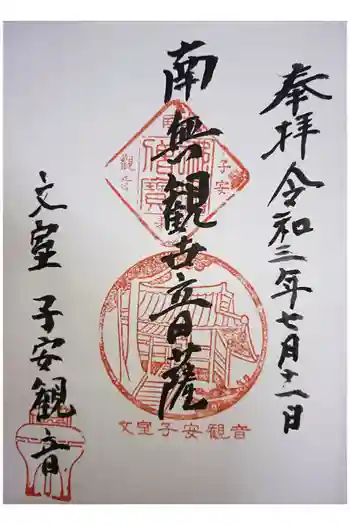 奉拝 令和三年七月十一日
南無観世音菩薩
文室 子安観音
子安
観音
文室子安観音